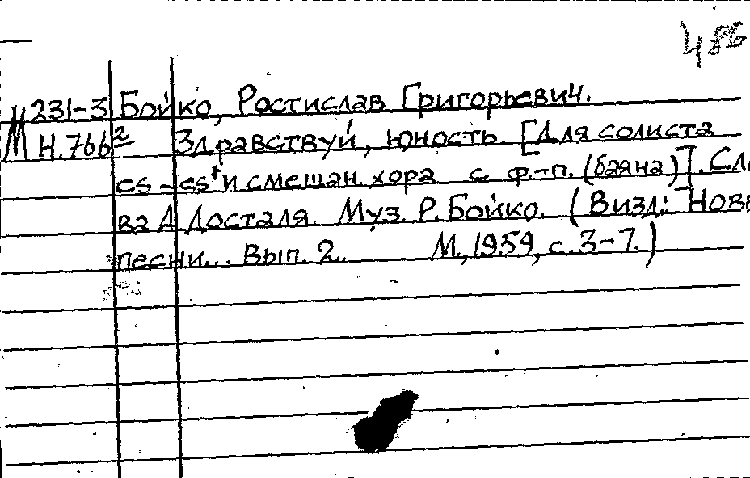 486
М 231-3 Бойко, Ростислав Григорьевич.
Н.766² Здравствуй, юность. [Для солиста
es - es⁺ и смешан. хора с ф.-п. (баяна)]. Сло
ва А Досталя. Муз. Р. Бойко. (В изд.: Новы
песни... Вып. 2. М., 1959, с. 3-7.)